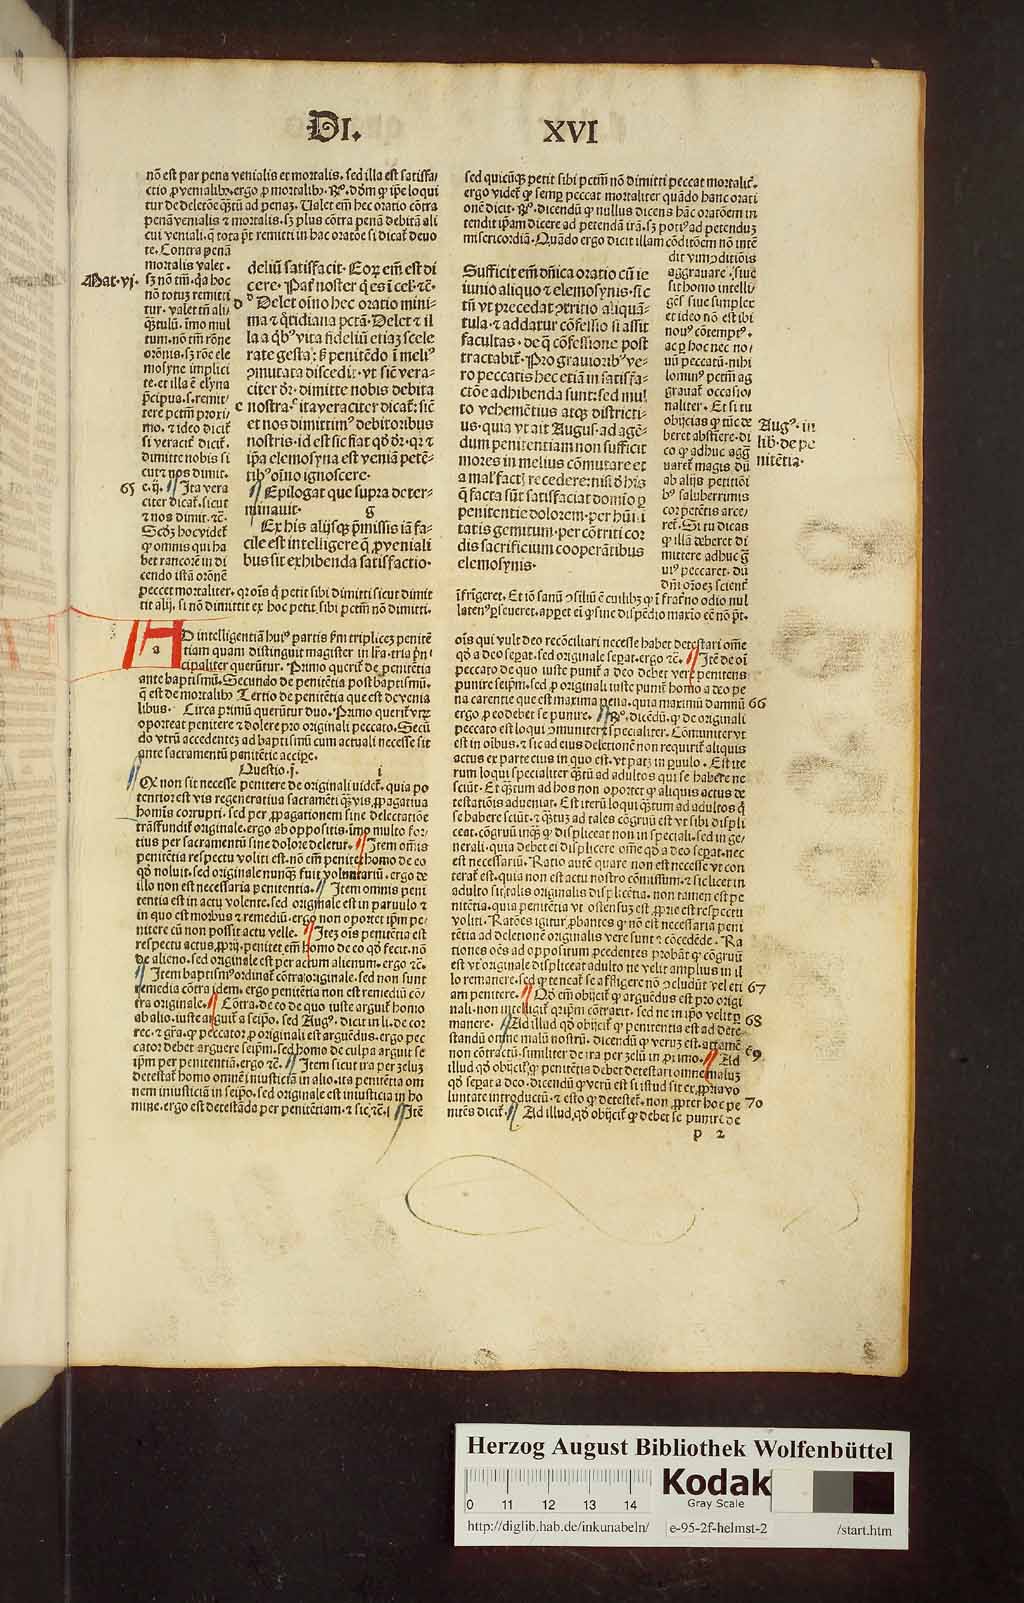 DI. XVI
nō est par pena venialis et mortalis. sed illa est satisfa/
ctio ꝓ venialibꝰ. ergo ꝓ mortalibꝰ. Rº. dōm ꝙ ip̄e loqui
tur de deletōe q̄ꝫtū ad penaꝫ. Valet em̄ hec oratio cōtra
penā venialis ⁊ mortalis. sꝫ plus cōtra penā debitā ali
cui veniali. q̄ tota pt̄ remitti in hac oratōe si dicat̄ deuo
te. Contra penā
mortalis valet.
sꝫ nō tm̄. q̄a hoc
nō totuꝫ remitti
tur. valet tn̄ ali/
q̄ꝫtulū. īmo mul
tum. nō tm̄ rōne
orōnis. sꝫ rōe ele
mosyne implici
te. et illa ē elyna
p̄cipua. s. remit/
tere pctm̄ proxi/
mo. ⁊ ideo dicit̄
si veracit̄ dicit̄.
dimitte nobis si
cut ⁊ nos dimit.
e. ij. Ita vera
citer dicat̄. sicut
⁊ nos dimit. ⁊c̄.
Scd̄ꝫ hoc videt̄
ꝙ omnis qui ha
bet rancorē in di
cendo istā orōnē
peccet mortaliter. qꝛ oīs q̄ petit sibi dimitti sicut dimit
tit alij. si nō dimittit ex hoc petit sibi pctm̄ nō dimitti.
Mat. vj.
65
delıū satisfacit. Eoꝝ em̄ est di
cere. Pat̄ noster q̄ es ī cel. ⁊c̄.
Delet oīno hec oratio mini-
ma ⁊ q̄tidiana pctā. Delet ⁊ il
la a qbꝰ vita fideliū etiaꝫ scele
rate gesta: sꝫ penitēdo ī meliꝰ
ꝯmutata discedit. vt sic̄ vera-
citer dr̄. dimitte nobis debita
nostra. ita veraciter dicat̄: sic̄
et nos dimittimꝰ debitoribus
nostris. id est sic fiat qd̄ dr̄. qꝛ ⁊
ip̄a elemosyna est veniā petē-
tibꝰ oīno ignoscere.
Epilogat que supra deter-
minauit. g
Ex his alijsqꝫ p̄missis iā fa-
cile est intelligere q̄ ꝓ veniali
bus sit exhibenda satisfactio.
D intelligentiā huiꝰ partis sm̄ triplicē penitē
tiam quam distinguit magister in lr̄a. tria p̄n
cipaliter querūtur. Primo querit̄ de penitētia
ante baptismū. Secundo de penitētia post baptismū.
q̄ est de mortalibꝰ Tertio de penitētia que est de venia
libus. Circa primū querūtur duo. Primo querit̄ vtꝝ
oporteat penitere ⁊ dolere pro originali peccato. Secū
do vtrū accedenteꝫ ad baptismū cum actuali necesse sit
ante sacramentū penitētie accipe.
Questio .j. i
QꝪ non sit necesse penitere de originali videt̄. quia po
tentior est vis regeneratiua sacramēti q̄ꝫ vis ꝓpagatiua
hominis corrupti. sed per ꝓpagationem sine delectatiōe
trāsfundit̄ originale. ergo ab oppositis. īmo multo for/
tius per sacramentū sine dolore deletur. Item omīs
penitētia respectu voliti est. nō em̄ penitet homo de eo
qd̄ noluit. sed originale nunqꝫ fuit voluntariū. ergo de
illo non est necessaria penitentia. Item omnis peni
tentia est in actu volente. sed originale est in paruulo ⁊
in quo est morbus ⁊ remediū. ergo non oportet ip̄m pe/
nitere cū non possit actu velle. Iteꝫ oīs penitētia est
respectu actus ꝓprij. penitet em̄ homo de eo qd̄ fecit. nō
de alieno. sed originale est per actum alienum. ergo ⁊c̄.
Item baptismꝰ ordinat̄ cōtra originale. sed non sunt
remedia cōtra idem. ergo penitētia non est remediū cō/
tra originale. Cōtra. de eo de quo iuste arguit̄ homo
ab alio. iuste arguit̄ a seipo. sed Augꝰ. dicit in li. de cor
rec. ⁊ gr̄a. ꝙ peccator ꝓ originali est arguēdus. ergo pec
cator debet arguere seipm̄. sed homo de culpa arguit se
ip̄m per penitentiā. ergo ⁊c̄. Item sicut ira per ꝫeluꝫ
detestat̄ homo omnē iniusticiā in alio. ita penitētia om
nem iniusticiā in seipo. sed originale est iniusticia in ho
mine. ergo est detestāda per penitētiam. ⁊ sic ⁊c̄. Itē
sed quicūqꝫ petit sibi pctm̄ nō dimitti peccat mortalit̄.
ergo videt̄ ꝙ semꝑ peccat mortaliter quādo hanc orati
onē dicit. Rº. dicendū ꝙ nullus dicens hāc oratōem in
tendit ip̄am dicere ad petendā irā. sꝫ potiꝰ ad petenduꝫ
misericordiā. Quādo ergo dicit illam cōditōem nō intē
Sufficit em̄ dn̄ica oratio cū ie
iunio aliquo ⁊ elemosynis. sic
tn̄ vt precedat ꝯtritio aliquā-
tula. ⁊ addatur cōfessio si assit
facultas. de q̄ cōfessione post
tractabit̄. Pro grauioribꝰ ve-
ro peccatis hec etiā in satisfa-
ctōe adhibenda sunt: sed mul
to vehemētius atqꝫ districti-
us. quia vt ait Augus. ad agē-
dum penitentiam non sufficit
mores in melius cōmutare et
a malefact̄ recedere: nisi d̄ his
q̄ facta sūt satisfaciat domio ꝑ
penitentie dolorem. per hūili
tatis gemitum. per cōtriti cor
dis sacrificium cooperātibus
elemosynis.
dit vim ꝯditiōis
aggrauare. siue
sit homo intelli/
gēs siue simplex
et ideo nō est ibi
nouꝰ cōtemptꝰ.
ac ꝑ hoc nec no/
uū peccatū. nihi
lominꝰ pctm̄ ag
grauat̄ occasio/
naliter. Et si tu
obijcias ꝙ tūc de
beret abstīere. di
co ꝙ adhuc agḡ
uaret̄ magis dū
ab alijs petitiōi
bꝰ saluberrimis
cor petētis arce/
ret̄. Si tu dicas
ꝙ illā deberet di
mittere adhuc ḡ
uiꝰ peccaret. dū
dn̄i orōeꝫ scient̄
īfrigeret. Et iō sanū ꝯsiliū ē cuilibꝫ ꝙ ī frat̄no odio nul
latenꝰ ꝑseueret. apꝑet eī ꝙ sine dispēdio maxīo eē nō pt̄.
Augꝰ. in
lib. de pe
nitētia.
oīs qui vult deo recōciliari necesse habet detestari om̄e
qd̄ a deo sepat. sed originale sepat. ergo ⁊c̄. Itē de oī
peccato de quo iuste punit̄ a deo debet vere penitens
punire seipm̄. sed ꝓ originali iuste punit̄ homo a deo pe
na carentie que est maxima pena. quia maximū damnū
ergo ꝓ eo debet se punire. Rº. dicēdū. ꝙ de originali
peccato est loqui ꝯmuniter ⁊ specialiter. Cōmuniter vt
est in oībus. ⁊ sic ad eius deletionē non requirit̄ aliquis
actus ex parte eius in quo est. vt patꝫ in ꝑuulo. Est ite
rum loqui specialiter q̄ꝫtū ad adultos qui se habēre ne
sciūt. Et q̄ꝫtum ad hos non oportet ꝙ aliquis actus de
testatiōis adueniat. Est iterū loqui q̄ꝫtum ad adultos q̄
se habere sciūt. ⁊ q̄ꝫtum ad tales cōgruū est vt sibi displi
ceat. cōgruū inqꝫ ꝙ displiceat non in speciali. sed in ge/
nerali. quia debet ei displicere om̄e qd̄ a deo sepat. nec
est necessariū. Ratio autē quare non est necesse vt con
terat̄ est. quia non est actu nostro cōmissum. ⁊ sic licet in
adulto sit talis originalis displicētia. non tamen est pe
nitētia. quia penitētia vt ostensuꝫ est ꝓprie est respectu
voliti. Ratōes igitur ꝓbantes ꝙ nō est necessaria peni
tētia ad deletionē originalis vere sunt ⁊ cōcedēde. Ra
tiones oēs ad oppositum p̄cedentes probāt ꝙ cōgruū
est vt originale displiceat adulto ne velit amplius in il
lo remanere. sed ꝙ teneat̄ se affligere nō ꝯcludūt vel eti
am penitere. Qd̄ em̄ obijcit̄ ꝙ arguēdus est pro origi
nali. non intelligit̄ qꝛ ip̄m contraxit. sed ne in ip̄o velit ꝑ
manere. Ad illud qd̄ obijcit̄ ꝙ penitentia est ad dete
standū omne malū nostrū. dicendū ꝙ veruꝫ est. attamē
non contractū. similiter de ira per ꝫelū in ꝓximo. Ad
illud qd̄ obijcit̄ ꝙ penitētia debet detestari omne maluꝫ
qd̄ sepat a deo. dicendū ꝙ verū est si istud sit ex ꝓpria vo
luntate introductū. ⁊ esto ꝙ detestet̄. non ꝓpter hoc pe
nitēs dicit̄. Ad illud qd̄ obijcit̄ ꝙ debet se punire de
66
67
68
69
70
p 2
Herzog August Bibliothek Wolfenbüttel
0 11 12 13 14
Kodak
Gray Scale
http://diglib.hab.de/inkunabeln/ e-95-2f-helmst-2 /start.htm